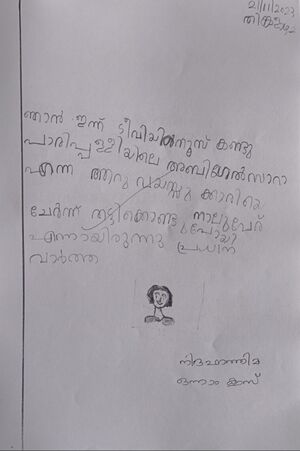 21/11/2023
തിങ്കളാഴ്ച
ഞാൻ ഇന്ന് ടീവിയിൽ ന്യൂസ് കണ്ടു
പാരിപ്പള്ളിയിലെ അബിഗേൽസാറാ
എന്ന ആറു വയസ്സുക്കാരിയെ
ചേർന്ന് തട്ടിക്കൊണ്ടു നാലുപേര്
പോയി
എന്നായിരുന്നു പ്രധാന
വാർത്ത
നിദഫാത്തിമ
ഒന്നാം ക്ലാസ്